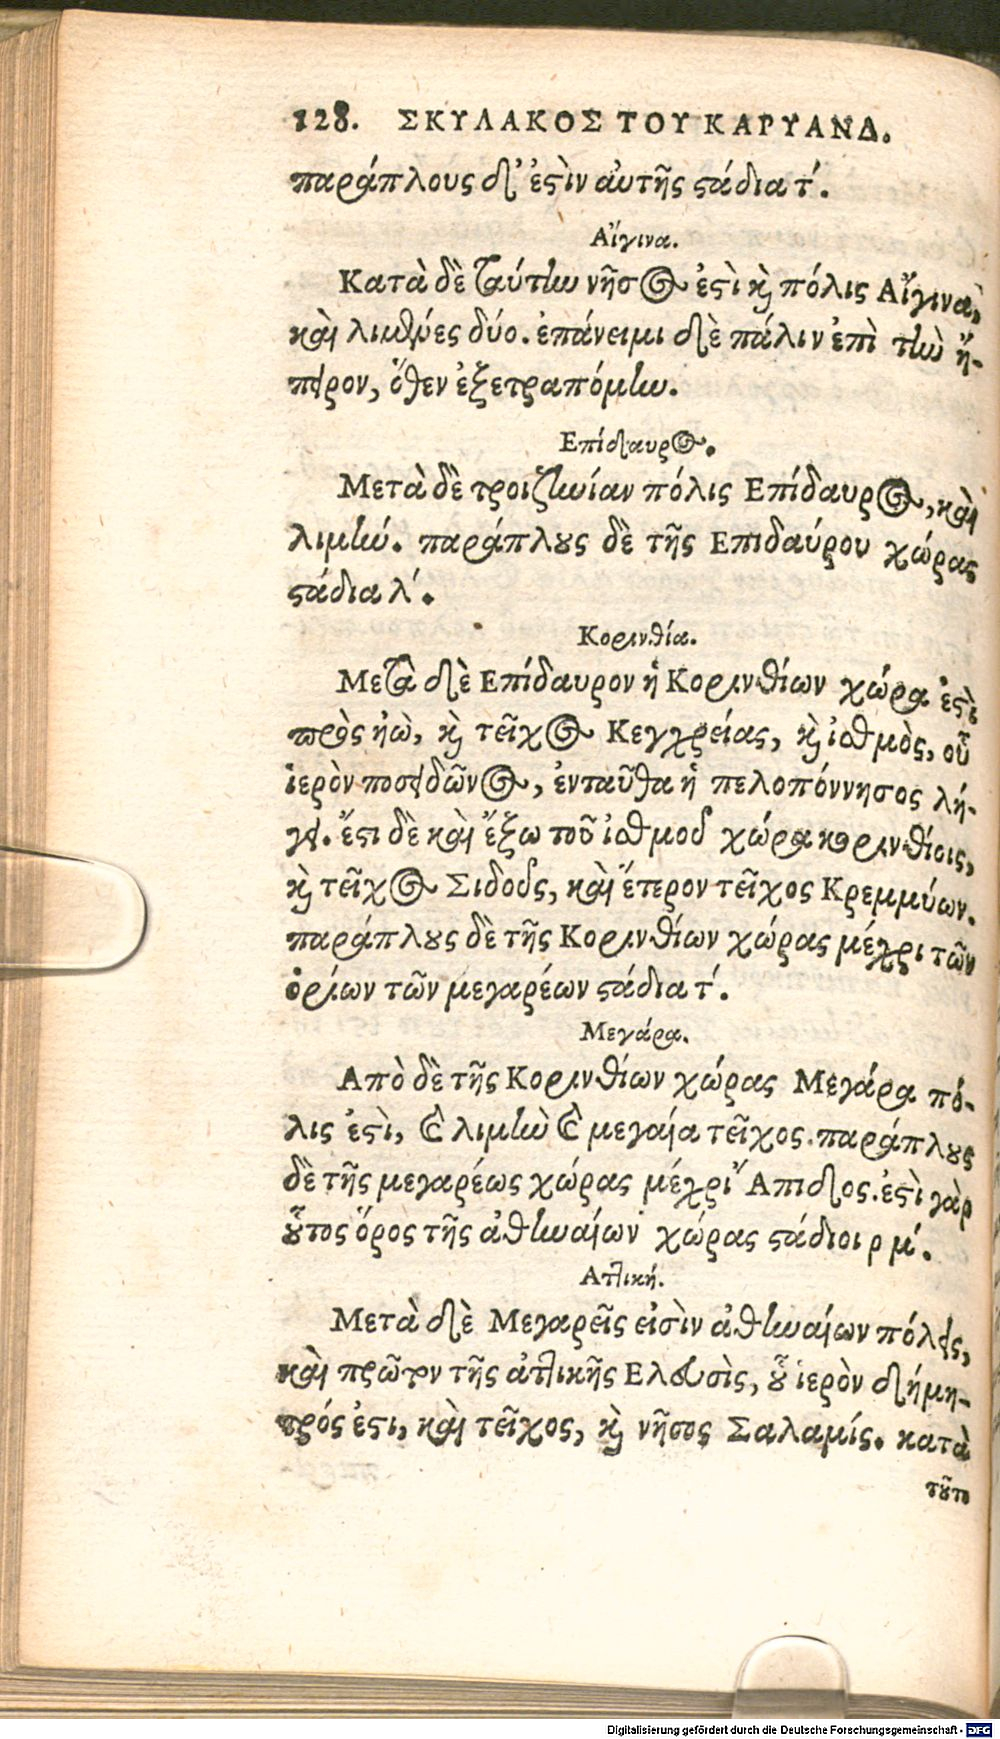 128. ΣΚΥΛΑΚΟΣ ΤΟΥ ΚΑΡΥΑΝΔ.
παράπλους δ' ἐϛὶν αὐτῆς ϛάδια τ'.
Αἴγινα.
Κατὰ δὲ ταύτην νῆσος ἐϛὶ ϗ πόλις Αἴγινα,
καὶ λιμένες δύο. ἐπάνειμι δὲ πάλιν ἐπὶ τὴν ἤ-
πειρον, ὅθεν ἐξετραπόμην.
Επίδαυρος.
Μετὰ δὲ τροιζηνίαν πόλις Επίδαυρος, καὶ
λιμήν. παράπλȣς δὲ τῆς Επιδαύρου χώρας
ϛάδια λ'.
Κορινθία.
Μετὰ δὲ Επίδαυρον ἡ Κορινθίων χώρα ἐϛὶ
πρὸς ἠὼ, ϗ τεῖχος Κεγχρείας, ϗ ἰσθμὸς, οὗ
ἱερὸν ποσειδῶνος, ἐνταῦθα ἡ πελοπόννησος λή-
γει. ἔϛι δὲ καὶ ἔξω τοῦ ἰσθμοῦ χώρα κορινθίοις,
ϗ τεῖχος Σιδοῦς, καὶ ἕτερον τεῖχος Κρεμμύων.
παράπλȣς δὲ τῆς Κορινθίων χώρας μέχρι τῶν
ὁρίων τῶν μεγαρέων ϛάδια τ'.
Μεγάρα.
Απὸ δὲ τῆς Κορινθίων χώρας Μεγάρα πό-
λις ἐϛὶ, καὶ λιμὴν καὶ μεγαία τεῖχος. παράπλȣς
δὲ τῆς μεγαρέως χώρας μέχρι Ἄπιδος. ἐϛὶ γὰρ
ȣ̃τος ὅρος τῆς ἀθηναίων χώρας ϛάδιοι ρμ'.
Ατlική.
Μετὰ δὲ Μεγαρεῖς εἰσὶν ἀθηναίων πόλεις,
καὶ πρῶτον τῆς ἀττικῆς Ελευσὶς, ȣ̃ ἱερὸν δήμη-
τρός ἐϛι, καὶ τεῖχος, ϗ νῆσος Σαλαμίς. κατὰ
τȣ̃το
Digitalisierung gefördert durch die Deutsche Forschungsgemeinschaft - DFG